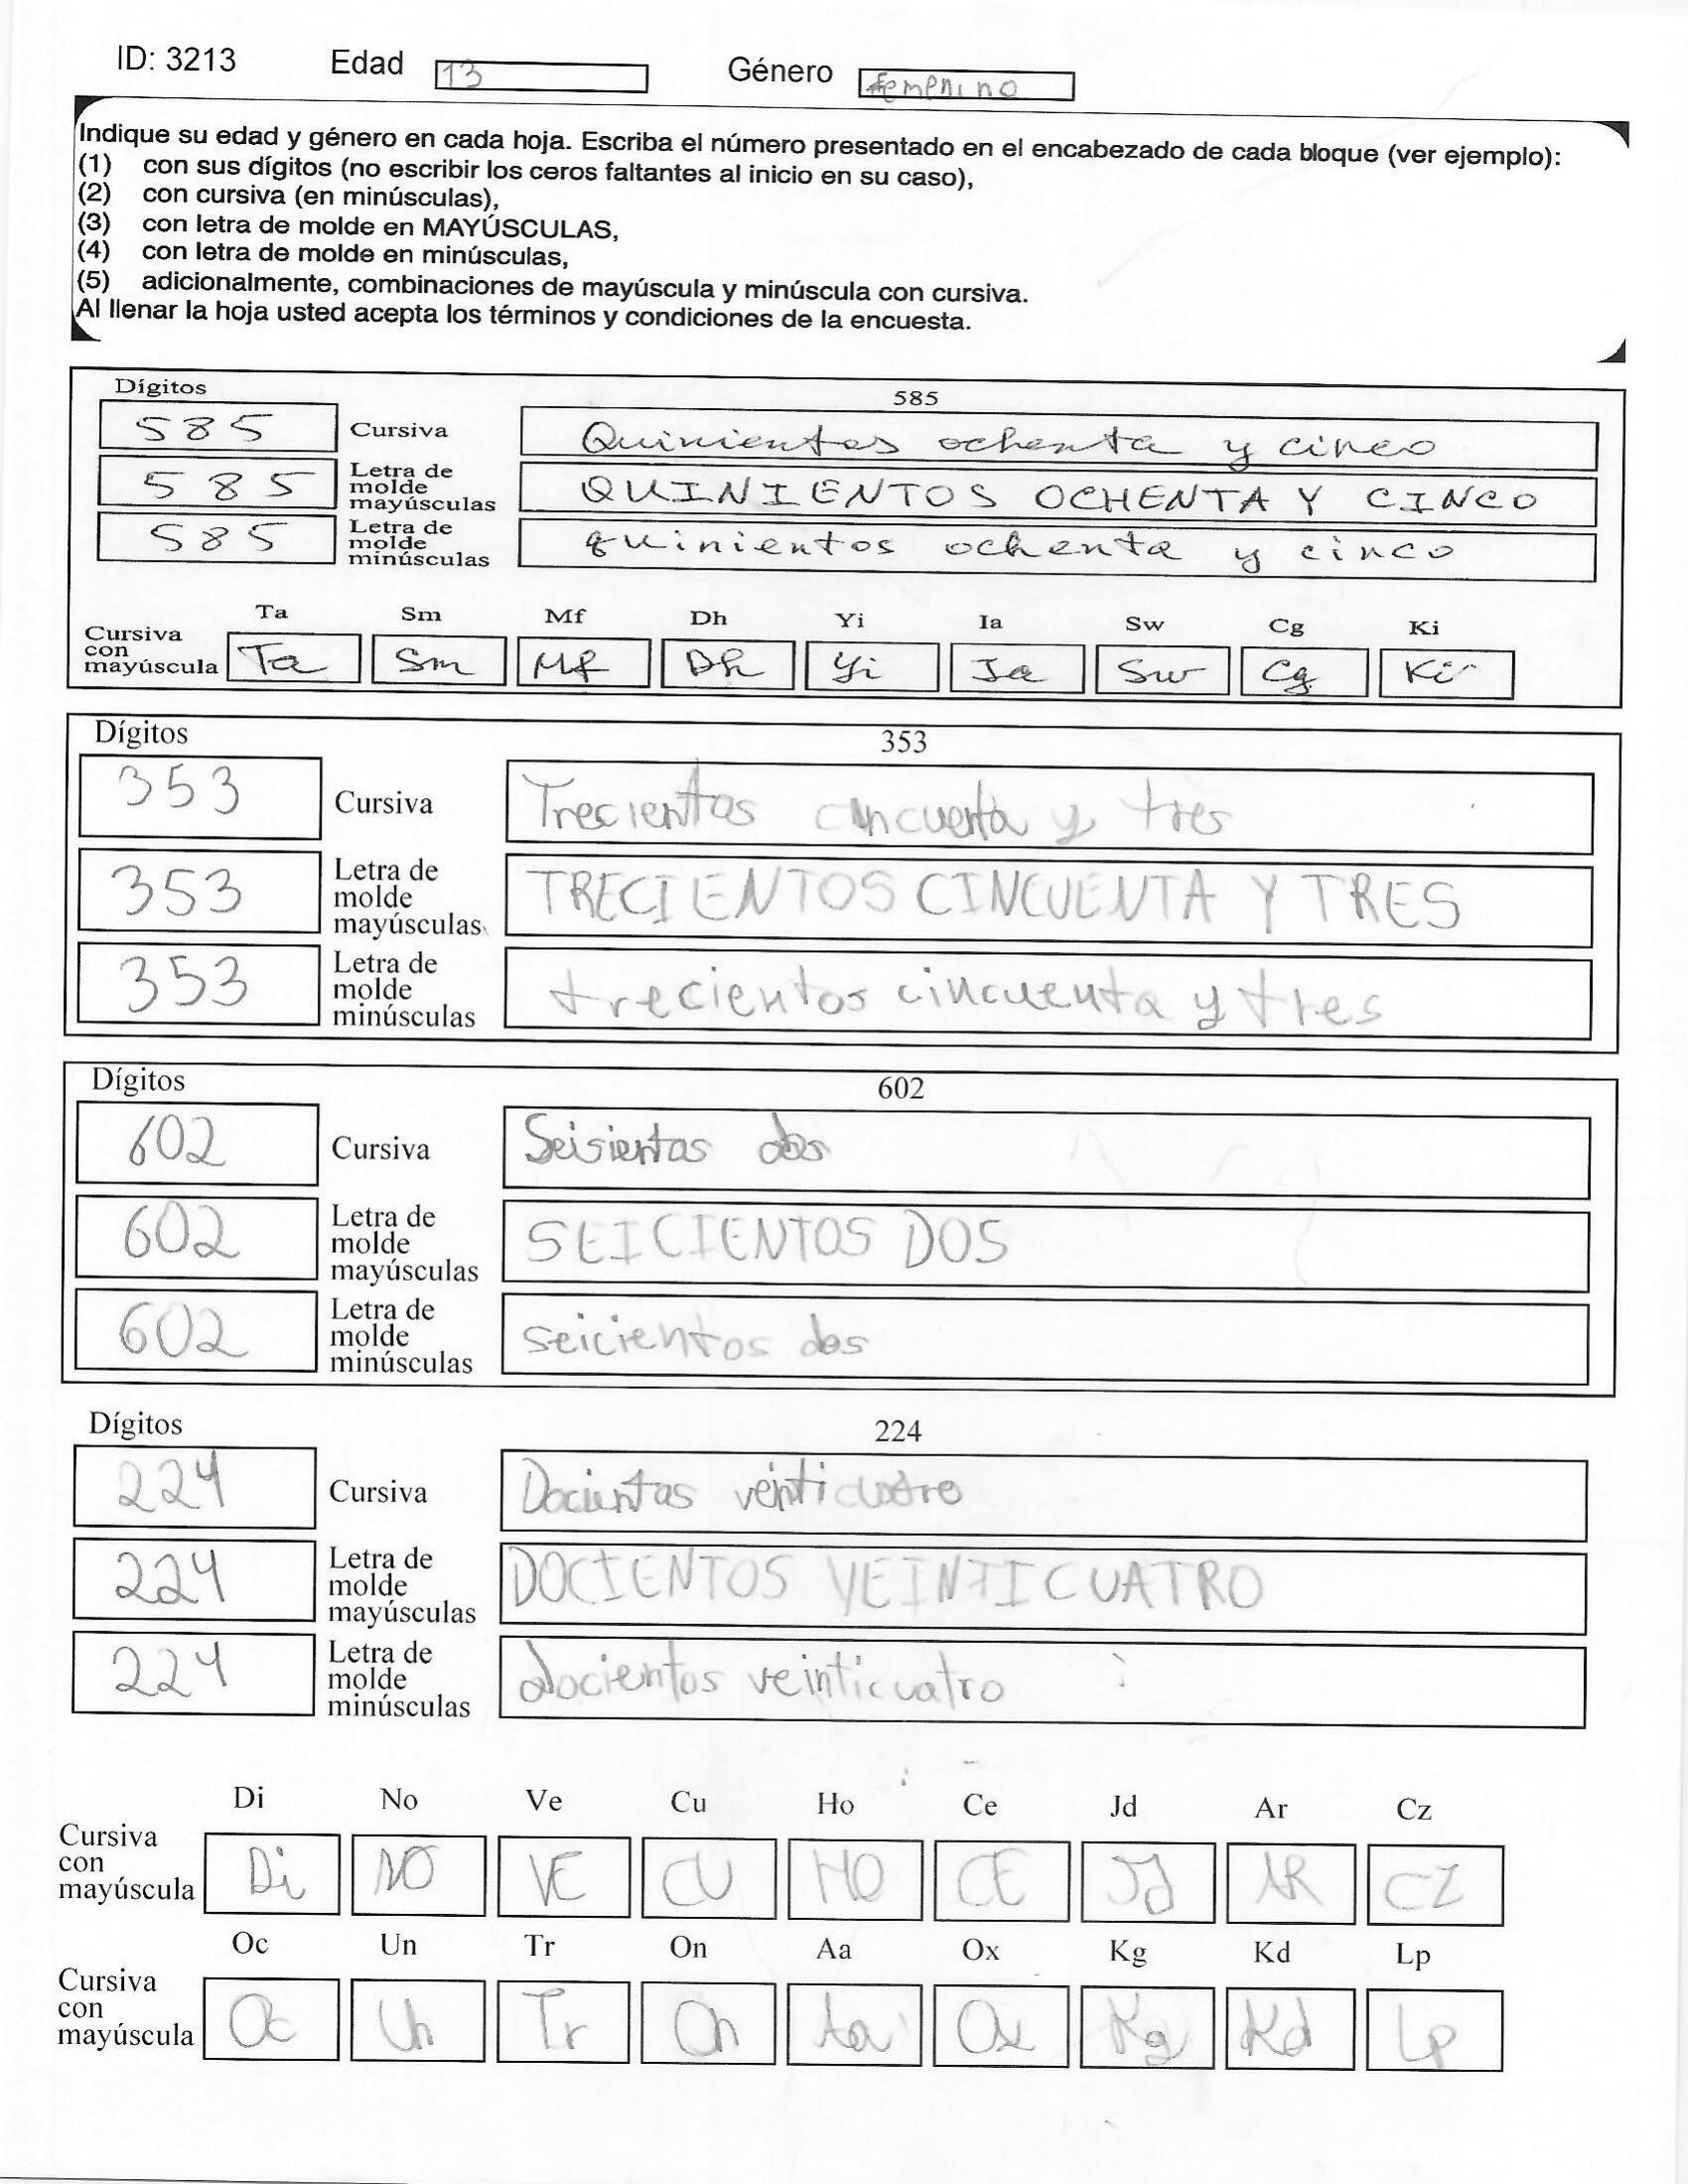 ID: 3213 Edad 13 Género femenino
Indique su edad y género en cada hoja. Escriba el número presentado en el encabezado de cada bloque (ver ejemplo):
(1) con sus dígitos (no escribir los ceros faltantes al inicio en su caso),
(2) con cursiva (en minúsculas),
(3) con letra de molde en MAYÚSCULAS,
(4) con letra de molde en minúsculas,
(5) adicionalmente, combinaciones de mayúscula y minúscula con cursiva.
Al llenar la hoja usted acepta los términos y condiciones de la encuesta.
Dígitos 585
585 Cursiva Quinientos ochenta y cinco
585 Letra de molde mayúsculas QUINIENTOS OCHENTA Y CINCO
585 Letra de molde minúsculas quinientos ochenta y cinco
Ta Sm Mf Dh Yi Ia Sw Cg Ki
Cursiva con mayúscula Ta Sm Mf Dh Yi Ia Sw Cg Ki
Dígitos 353
353 Cursiva Trecientos cincuenta y tres
353 Letra de molde mayúsculas TRECIENTOS CINCUENTA Y TRES
353 Letra de molde minúsculas trecientos cincuenta y tres
Dígitos 602
602 Cursiva Seisientos dos
602 Letra de molde mayúsculas SEICIENTOS DOS
602 Letra de molde minúsculas seicientos dos
Dígitos 224
224 Cursiva Docientos veinticuatro
224 Letra de molde mayúsculas DOCIENTOS VEINTICUATRO
224 Letra de molde minúsculas docientos veinticuatro
Di No Ve Cu Ho Ce Jd Ar Cz
Cursiva con mayúscula Di NO VE CU HO CE Jd AR CZ
Oc Un Tr On Aa Ox Kg Kd Lp
Cursiva con mayúscula Oc Un Tr On Aa Ox Kg Kd Lp